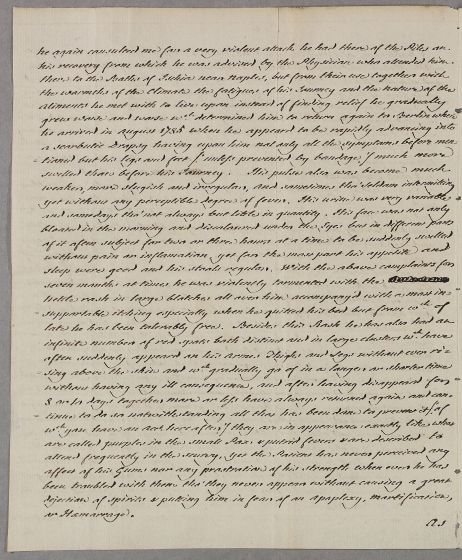 he again consulted me for a very violent attack he had there of the Piles on
his recovery from which he was advised by the Physician who attended him
there to the Baths of Ischia near Naples, but from their use together with
the warmth of the Climate the fatigues of his Journey and the nature of the
aliments he met with to live upon instead of finding relief he gradually
grew worse and worse wch determined him to return again to Berlin where
he arrived in august 1785 when he appeared to be rapidly advancing into
a scorbutic Dropsy having upon him not only all the symptoms before men
tioned but his Legs and feet / unless prevented by bandage / much more
swelled than before his Journey. His pulse also was become much
weaker, more slugish and irregular, and sometimes tho' seldom intermitting
yet without any perceptible degree of fever. His urine was very variable
and somedays tho' not always but little in quantity. His face was not only
bloated in the morning and discoloured under the Eyes but in different parts
of it often subject for two or three hours at a time to be suddenly swelled
without pain or inflamation, yet for the most part his appetite and
sleep were good and his stools regular. With the above complaints for
seven months at times he was violently tormented with the
Nettle rash in large blotches all over him accompany'd with a most in
supportable itching especially when he quitted his bed but from wch of
late he has been tolerably free. Besides this Rash he has also had an
infinite number of red spots both distinct and in large clusters wch have
often suddenly appeard on his Arms Thighs and Legs without ever ri
sing above the skin and wch gradually go of in a longer or shorter time
without having any ill consequence, and after having disappeard for
8 or 10 days together more or less have always returned again and con
tinue to do so notwithstanding all that has been done to prevent it / of
wch you have an acct here after / they are in appearance exactly like what
are called purples in the small Pox & putrid fevers & are described to
attend frequently in the scurvy, yet the Patient has never perceived any
affect of his Gums nor any prostration of his strength when ever he has
been troubled with them tho' they never appear without causing a great
dejection of spirits & putting him in fear of an apoplexy, mortification,
or Hæmorrage.
as